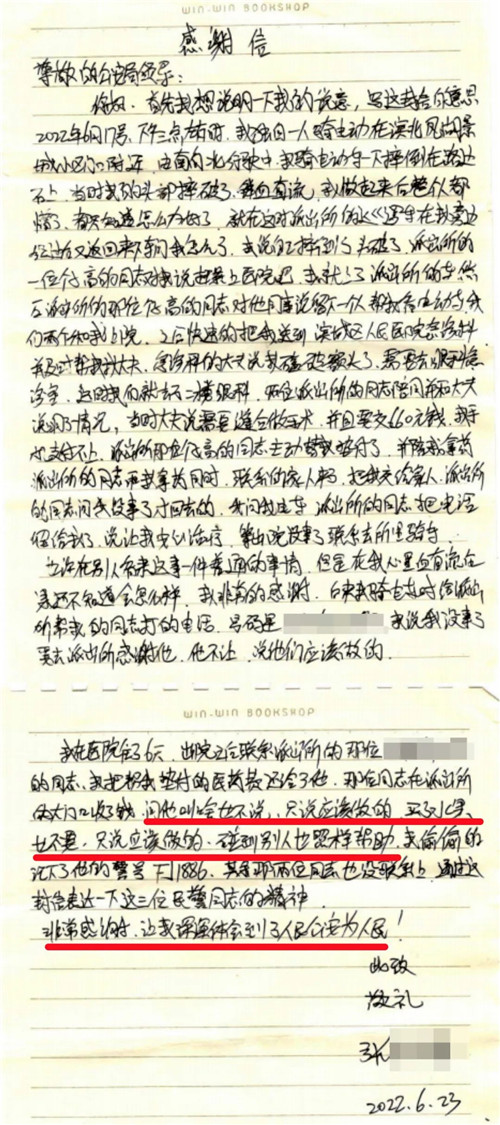 WIN-WIN BOOKSHOP
感谢信
尊敬的公安局领导:
你好。首先我想说明一下我的说意,写这封信的意思
2022年6月17号,下午三点左右时,我独自一人骑电动车在滨北凤凰景
城小区门口附近,由南向北行驶中,我骑电动车一下摔倒在路边
石上,当时我的头部摔破了,鲜血直流,我做起来后整个人都
懵了,都不知道怎么办好了,就在这时派出所的车在我旁边
经过后又返回来,问我怎么了,我说自己摔倒了头破了,派出所的
一位个高的同志对我说赶紧上医院吧,我就上了派出所的车,然
后派出所的那位个高的同志对他同事说留下一个人帮我看电动车,我
们两个和我上医院,之后快速的把我送到滨城区人民医院急诊科
并及时帮我找大夫,急诊科的大夫说我磕破额头了,需要去眼科急
诊室,这时我们就去了二楼眼科,两位派出所的同志陪同并和大夫
说明了情况,当时大夫说需要缝合做手术,并且要交660元钱,我手
机支付不上,派出所那位个高的同志主动替我垫付了,并陪我拿药
派出所的同志和我拿药同时,联系的家人,把我交给家人,派出所
的同志问我没事了才回去的,我问我电车,派出所的同志把电话
留给我了,说让我安心治疗,等出院没事了联系去所里骑车
也许在别人看来这是一件普通的事情,但是在我心里血直流的
真还不知道会怎么样,我非常的感谢,后来我骑电车时给派出
所帮我的同志打的电话,号码是 我说我没事了
要去派出所感谢他,他不让,说他们应该做的.
WIN-WIN BOOKSHOP
我在医院住了6天,出院之后联系派出所的那位
的同志,我把帮我垫付的医药费还给了他,那位同志在派出所
的大门口收了钱,问他叫啥也不说,只说应该做的,买了水果
也不要,只说应该做的,碰到别人也照样帮助,我偷偷的
记下了他的警号 1886,其余那两位同志也没联系上,通过这
封信表达一下这三位民警同志的精神
非常感谢,让我深深体会到了人民公安为人民!
此致
敬礼
张
2022.6.23